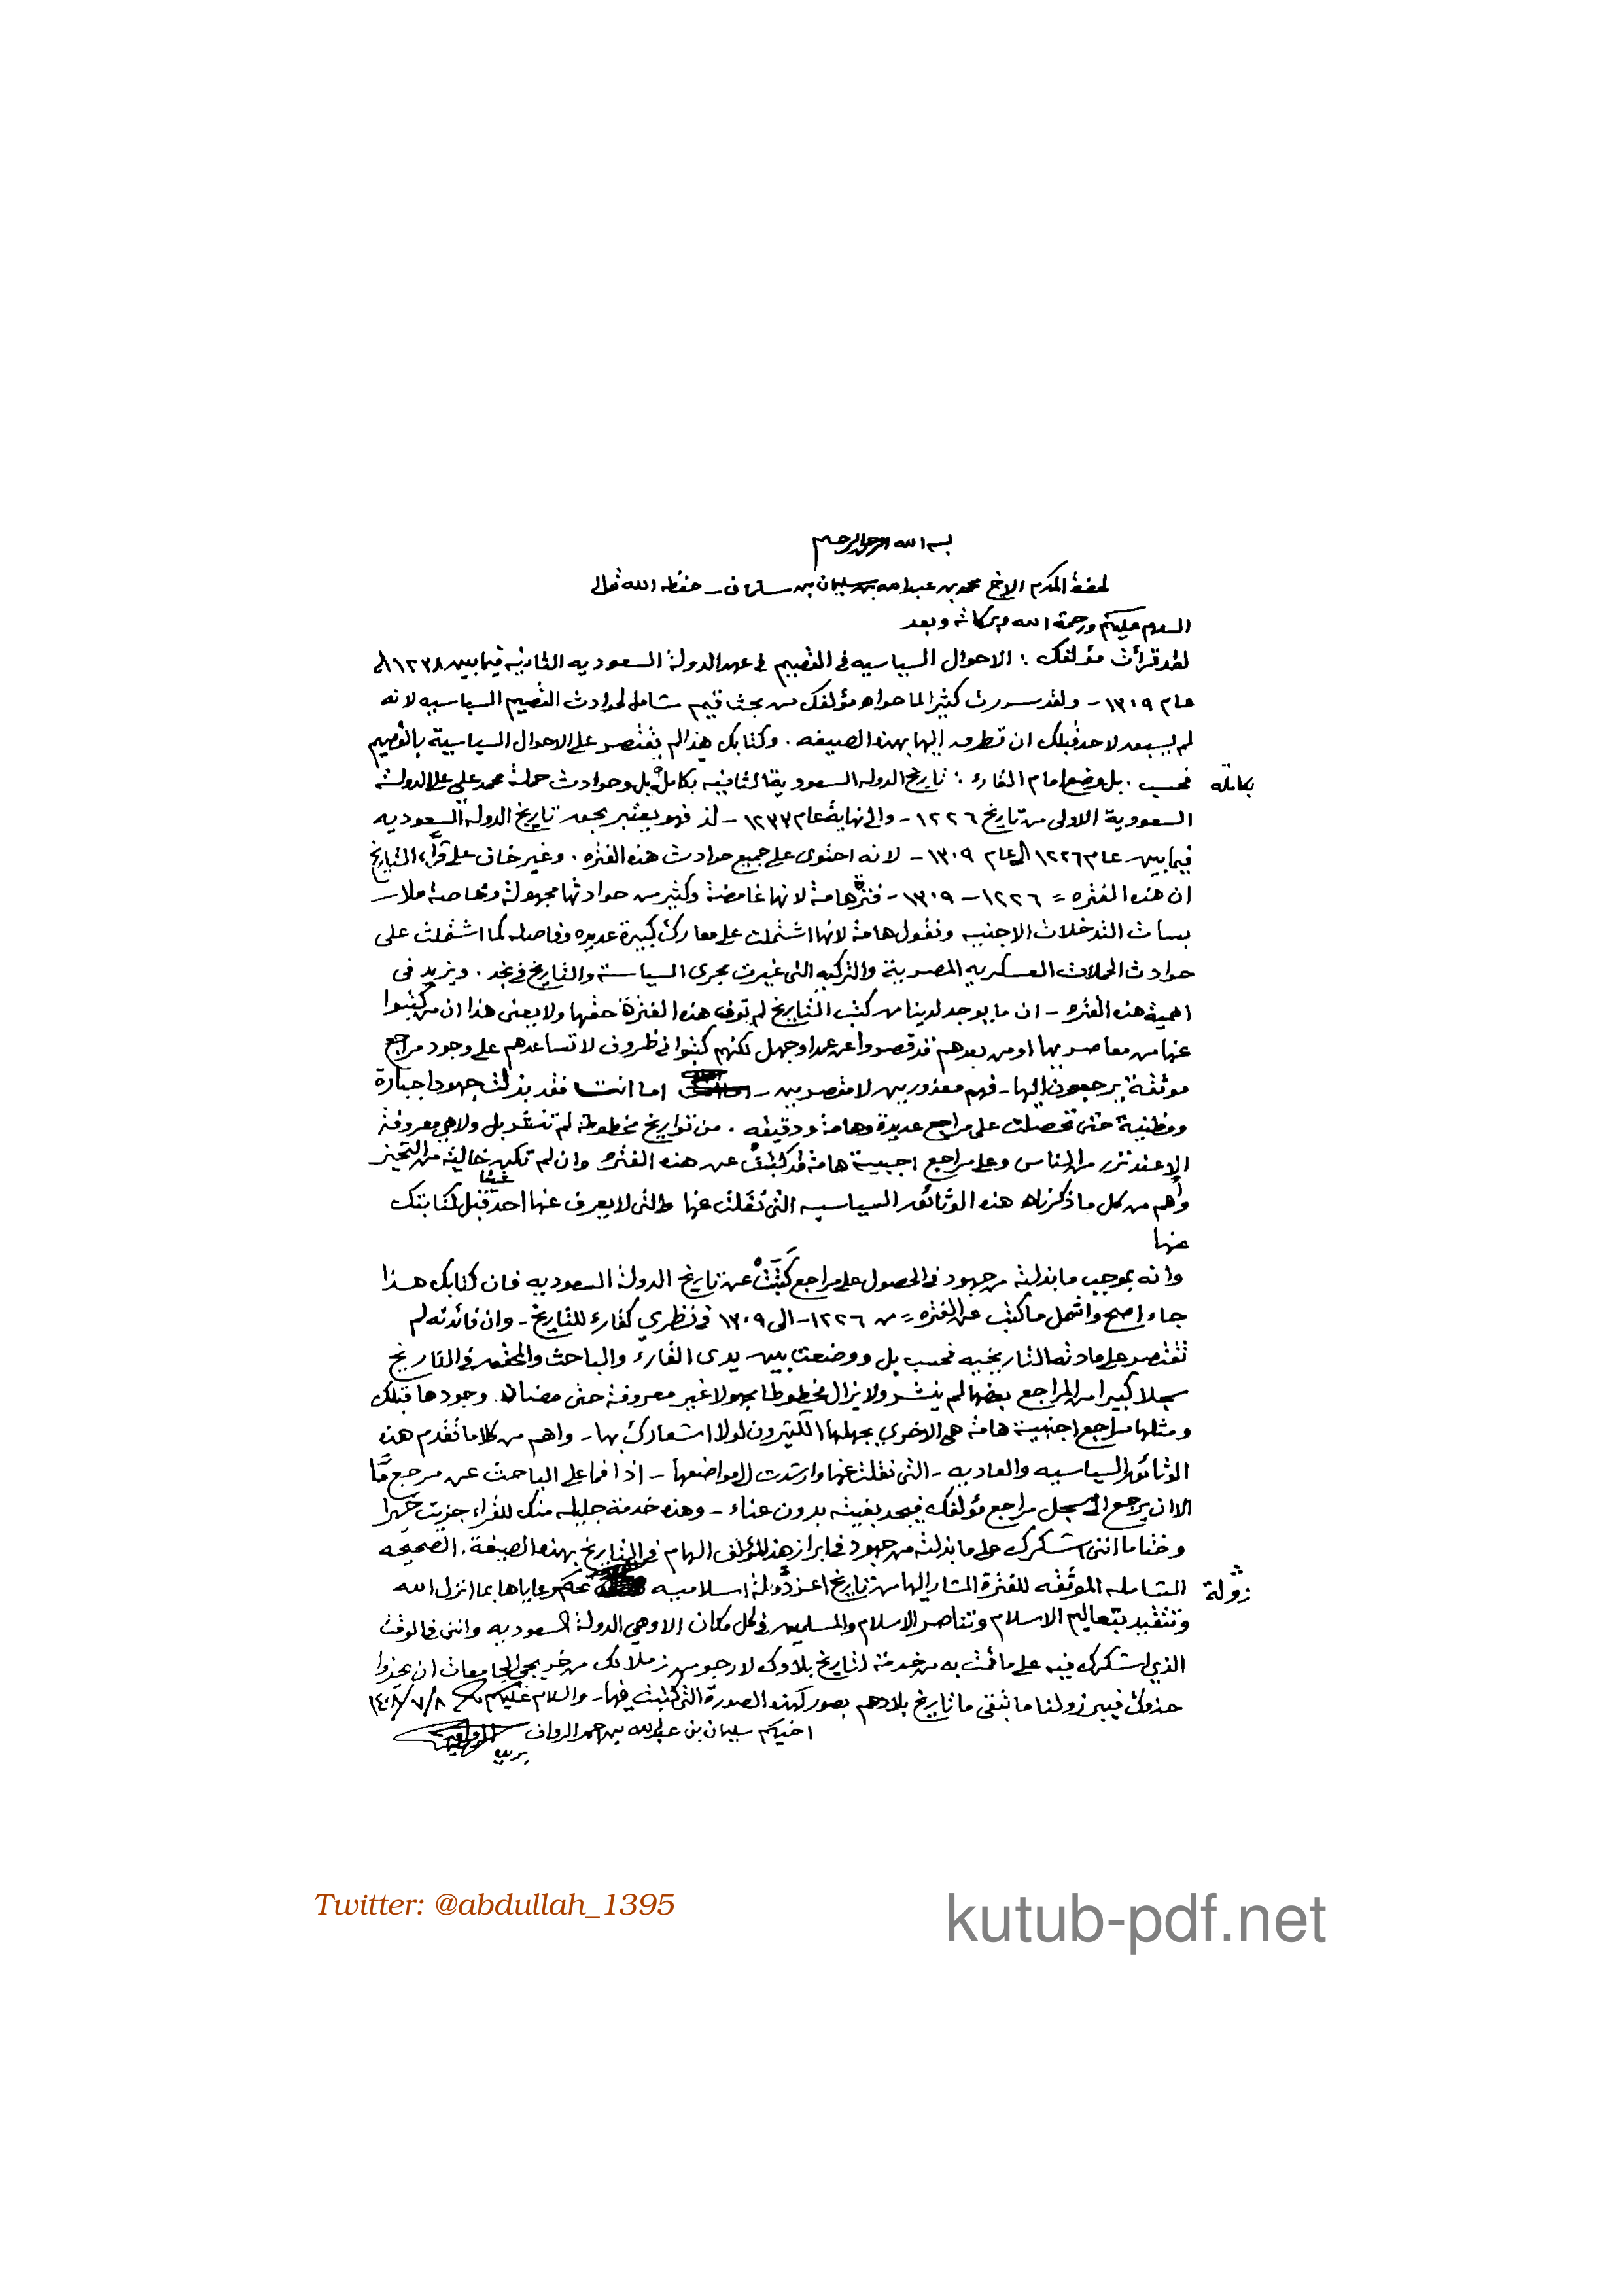 بسم الله الرحمن الرحيم
لحضرة المكرم الاخ محمد بن عبدالله بن سليمان بن سلمان - حفظه الله تعالى
السلام عليكم ورحمة الله وبركاته وبعد
لقد قرأت مؤلفك : الاحوال السياسيه في القصيم في عهد الدولة السعوديه الثانية فيما بين ١٢٣٨ الى
عام ١٣٠٩ - ولقد سررت كثيرا لما حواه مؤلفك من بحث قيم شامل لحوادث القصيم السياسيه لانه
لم يسبق لاحد قبلك ان تطرق اليها بهذه الصيغه . وكتابك هذا لم يقتصر على الاحوال السياسية بالقصيم
فحسب . بل وضع امام القارء : تاريخ الدوله السعودية الثانيه بكامله بل وحوادث حملة محمد علي على الدولة
بكامله
السعودية الاولى من تاريخ ١٢٢٦ - والى نهاية عام ١٢٣٣ - لذ فهو يعتبر بحق تاريخ الدولة السعوديه
فيما بين عام ١٢٢٦ الى عام ١٣٠٩ - لانه احتوى على جميع حوادث هذه الفتره . وغير خاف على قراء التاريخ
ان هذه الفتره = ١٢٢٦ - ١٣٠٩ - فترة هامة لانها غامضة وكثير من حوادثها مجهولة وخاصة ملا
بسات التدخلات الاجنبيه ونقول هامة لانها اشتملت على معارك كبيرة عديده وفاصله كما اشتملت على
حوادث الحملات العسكريه المصرية والتركيه التي غيرت مجرى السياسة والتاريخ في نجد . ويزيد في
اهمية هذه الفتره - ان ما يوجد لدينا من كتب التاريخ لم توف هذه الفترة حقها ولا يعني هذا ان من كتبوا
عنها من معاصريها او من بعدهم قد قصروا عن عمد او جهل لكنهم كتبوا في ظروف لا تساعدهم على وجود مراجع
موثقة يرجعون اليها - فهم معذورين لا مقصرين - اما انت فقد بذلت جهودا جبارة
ومظنية حتى تحصلت على مراجع عديدة وهامة ودقيقه . من تواريخ مخطوطة لم تنشر بل ولا هي معروفة
الا عند نزر من الناس وعلى مراجع اجنبية هامة قد كتبت عن هذه الفتره وان لم تكن خالية من التحيز
واهم من كل ما ذكرناه هذه الوثائق السياسيه التي نقلت عنها والتي لا يعرف عنها احد شيئا قبل كتابتك
عنها
وانه بموجب ما بذلته من جهود في الحصول على مراجع كتبت عن تاريخ الدولة السعوديه فان كتابك هذا
جاء اصح واشمل ما كتب عن الفتره = من ١٢٢٦ - الى ١٣٠٩ في نظري كقارء للتاريخ - وان فائدته لم
تقتصر على مادته التاريخيه فحسب بل ووضعت بين يدى القارء والباحث والمحقق في التاريخ
سجلا كبيرا من المراجع بعضها لم ينشر ولا يزال مخطوطا مجهولا غير معروفة حتى مضان وجودها قبلك
ومثلها مراجع اجنبية هامة هي الاخرى يجهلها الكثيرون لولا اشعارك بها - واهم من كل ما تقدم هذه
الوثائق السياسيه والعاديه - التي نقلت عنها وارشدت الى مواضعها - اذا فما على الباحث عن مرجع ما
الا ان يرجع الى سجل مراجع مؤلفك فيجد بغيته بدون عناء - وهذه خدمة جليله منك للقراء جزيت خيرا
وختاما انني اشكرك على ما بذلته من جهود في ابراز هذا المؤلف الهام في التاريخ بهذه الصيغة . الصحيحه
الشامله الموثقه للفترة المشار اليها من تاريخ اعز دولة اسلاميه تحكم رعاياها بما انزل الله
دولة
وتتقيد بتعاليم الاسلام وتناصر الاسلام والمسلمين في كل مكان الا وهي الدولة السعوديه وانني في الوقت
الذي اشكرك فيه على ما قمت به من خدمة لتاريخ بلادك لارجو من زملائك من خريجي الجامعات ان يحذوا
حذوك فيبرزوا لنا ما بقي ما تاريخ بلادهم بصور كهذه الصورة التي كتبت فيها - والسلام عليكم ١٤٠٨/٧/٨
اخيكم سليمان بن عبدالله بن حمد الرواف
بريده
Twitter: @abdullah_1395
kutub-pdf.net